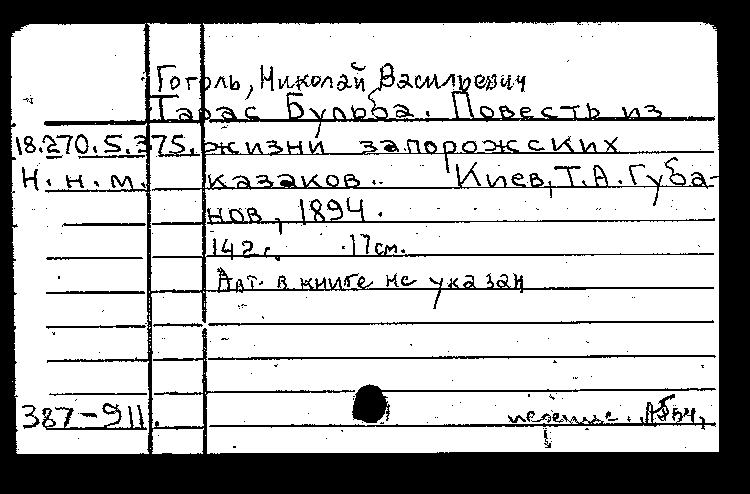 Гоголь, Николай Васильевич
Тарас Бульба. Повесть из
18.270.5.375. жизни запорожских
Н.н.м. казаков. Киев, Т.А.Губа-
нов, 1894.
142 с. 17см.
Авт. в книге не указан
387-911.